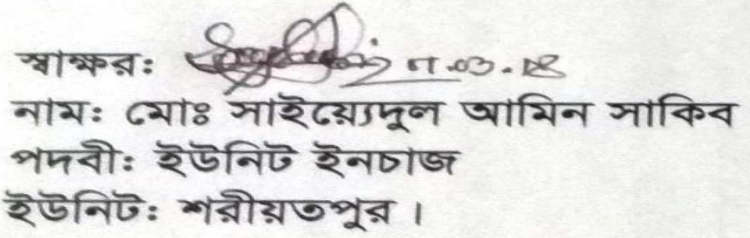 স্বাক্ষর:
নাম: মোঃ সাইয়্যেদুল আমিন সাকিব
পদবী: ইউনিট ইনচাজ
ইউনিট: শরীয়তপুর ।